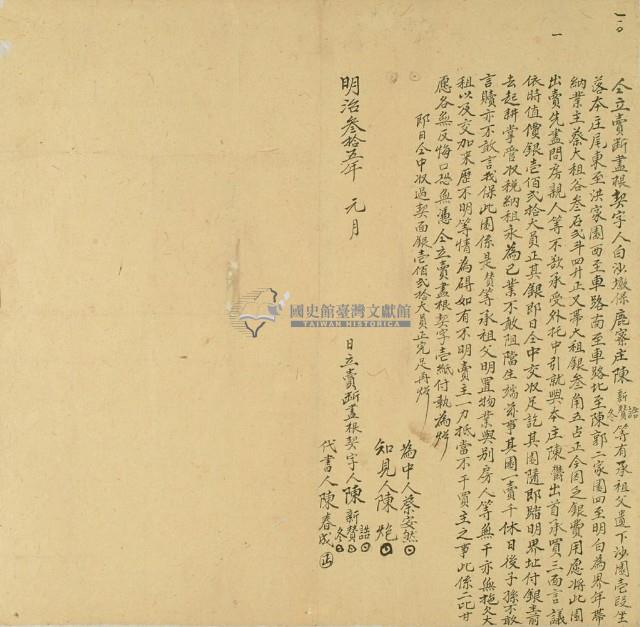 仝立賣断盡根契字人白沙墩保鹿寮庄陳新賛諎冬等有承祖父遺下沙園壹段坐
落本庄尾東至洪家園西至車路南至車路北至陳郭二家園四至明白為界年帶
納業主蔡大租谷叁石弍斗四升正又帶大租銀叁角五占正今因乏銀費用愿將此園
出賣先盡問房親人等不欲承受外托中引就與本庄陳欝出首承買三面言議
依時值價銀壹佰弍拾大員正其銀即日仝中交收足訖其園隨即踏明界址付銀主前
去起耕掌管收稅納租永為己業不敢阻擋生端滋事其園一賣千休日後子孫不敢
言贖亦不敢言找保此園係是賛等承祖父明置物業與別房人等無干亦無拖欠大
租以及交加來歷不明等情為碍如有不明賣主一力抵當不干買主之事此係二比甘
愿各無反悔口恐無憑仝立賣盡根契字壹紙付執為炤
即日仝中収過契面銀壹佰弍拾大員正完足再炤
為中人蔡安然
知見人陳炮
明治叁拾五年 元月 日立賣断盡根契字人陳新賛諎冬
代書人陳春成
國史館臺灣文獻館
TAIWAN HISTORICA